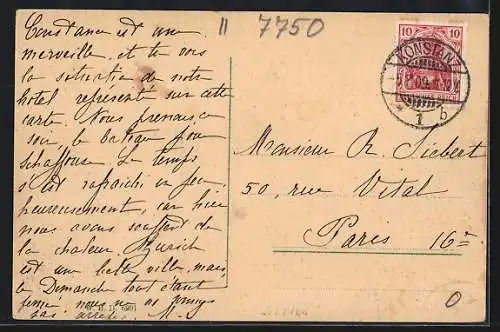 7750
Constance est une
merveille, et tu vois
la situation de notre
hôtel représenté sur cette
carte. Nous prenons ce
soir le bateau pour
Schaffouse. Le temps
s'est rafraichi un peu
heureusement, car hier
nous avons souffert de
la chaleur. Zurich
est une belle ville, mais
le Dimanche tout étant
fermé, nous ne
pas
10 10
KONSTANZ
09
1 b
Monsieur R. Siebert
50, rue Vital
Paris 16e
0